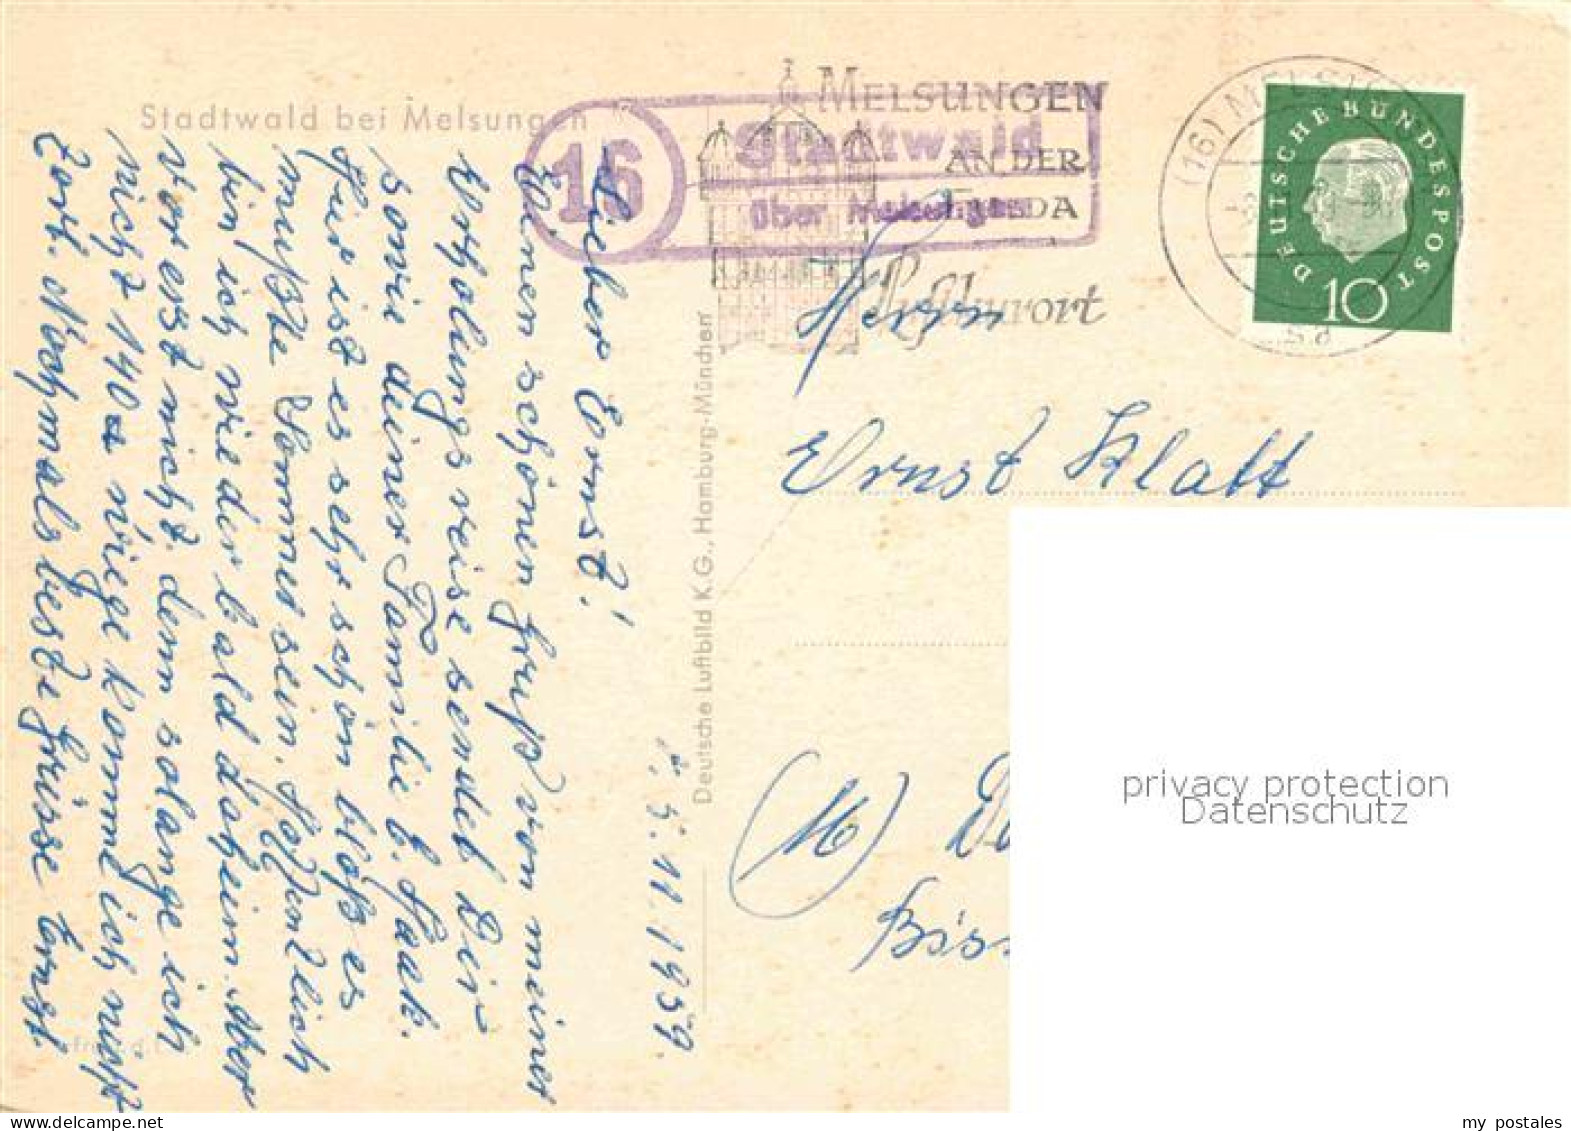 Stadtwald bei Melsungen
16
Stadtwald
über Melsungen
MELSUNGEN
AN DER
FULDA
Luftkurort
(16) MELSUNGEN
DEUTSCHE BUNDESPOST
10
Herrn
Ernst Klatt
(16)
Deutsche Luftbild K.G., Hamburg-München
3.11.1959.
Lieber Ernst!
Einen schönen Gruß von meiner
Erholungsreise sendet Dir
sowie deiner Familie E. Haak.
Hier ist es sehr schön bloß es
mußte Sommer sein. Hoffentlich
bin ich wieder bald daheim. Aber
vorerst nicht. denn solange ich
nicht 140 wiege komme ich nicht
fort. Nochmals beste Grüsse Ernst.
privacy protection
Datenschutz
my postales